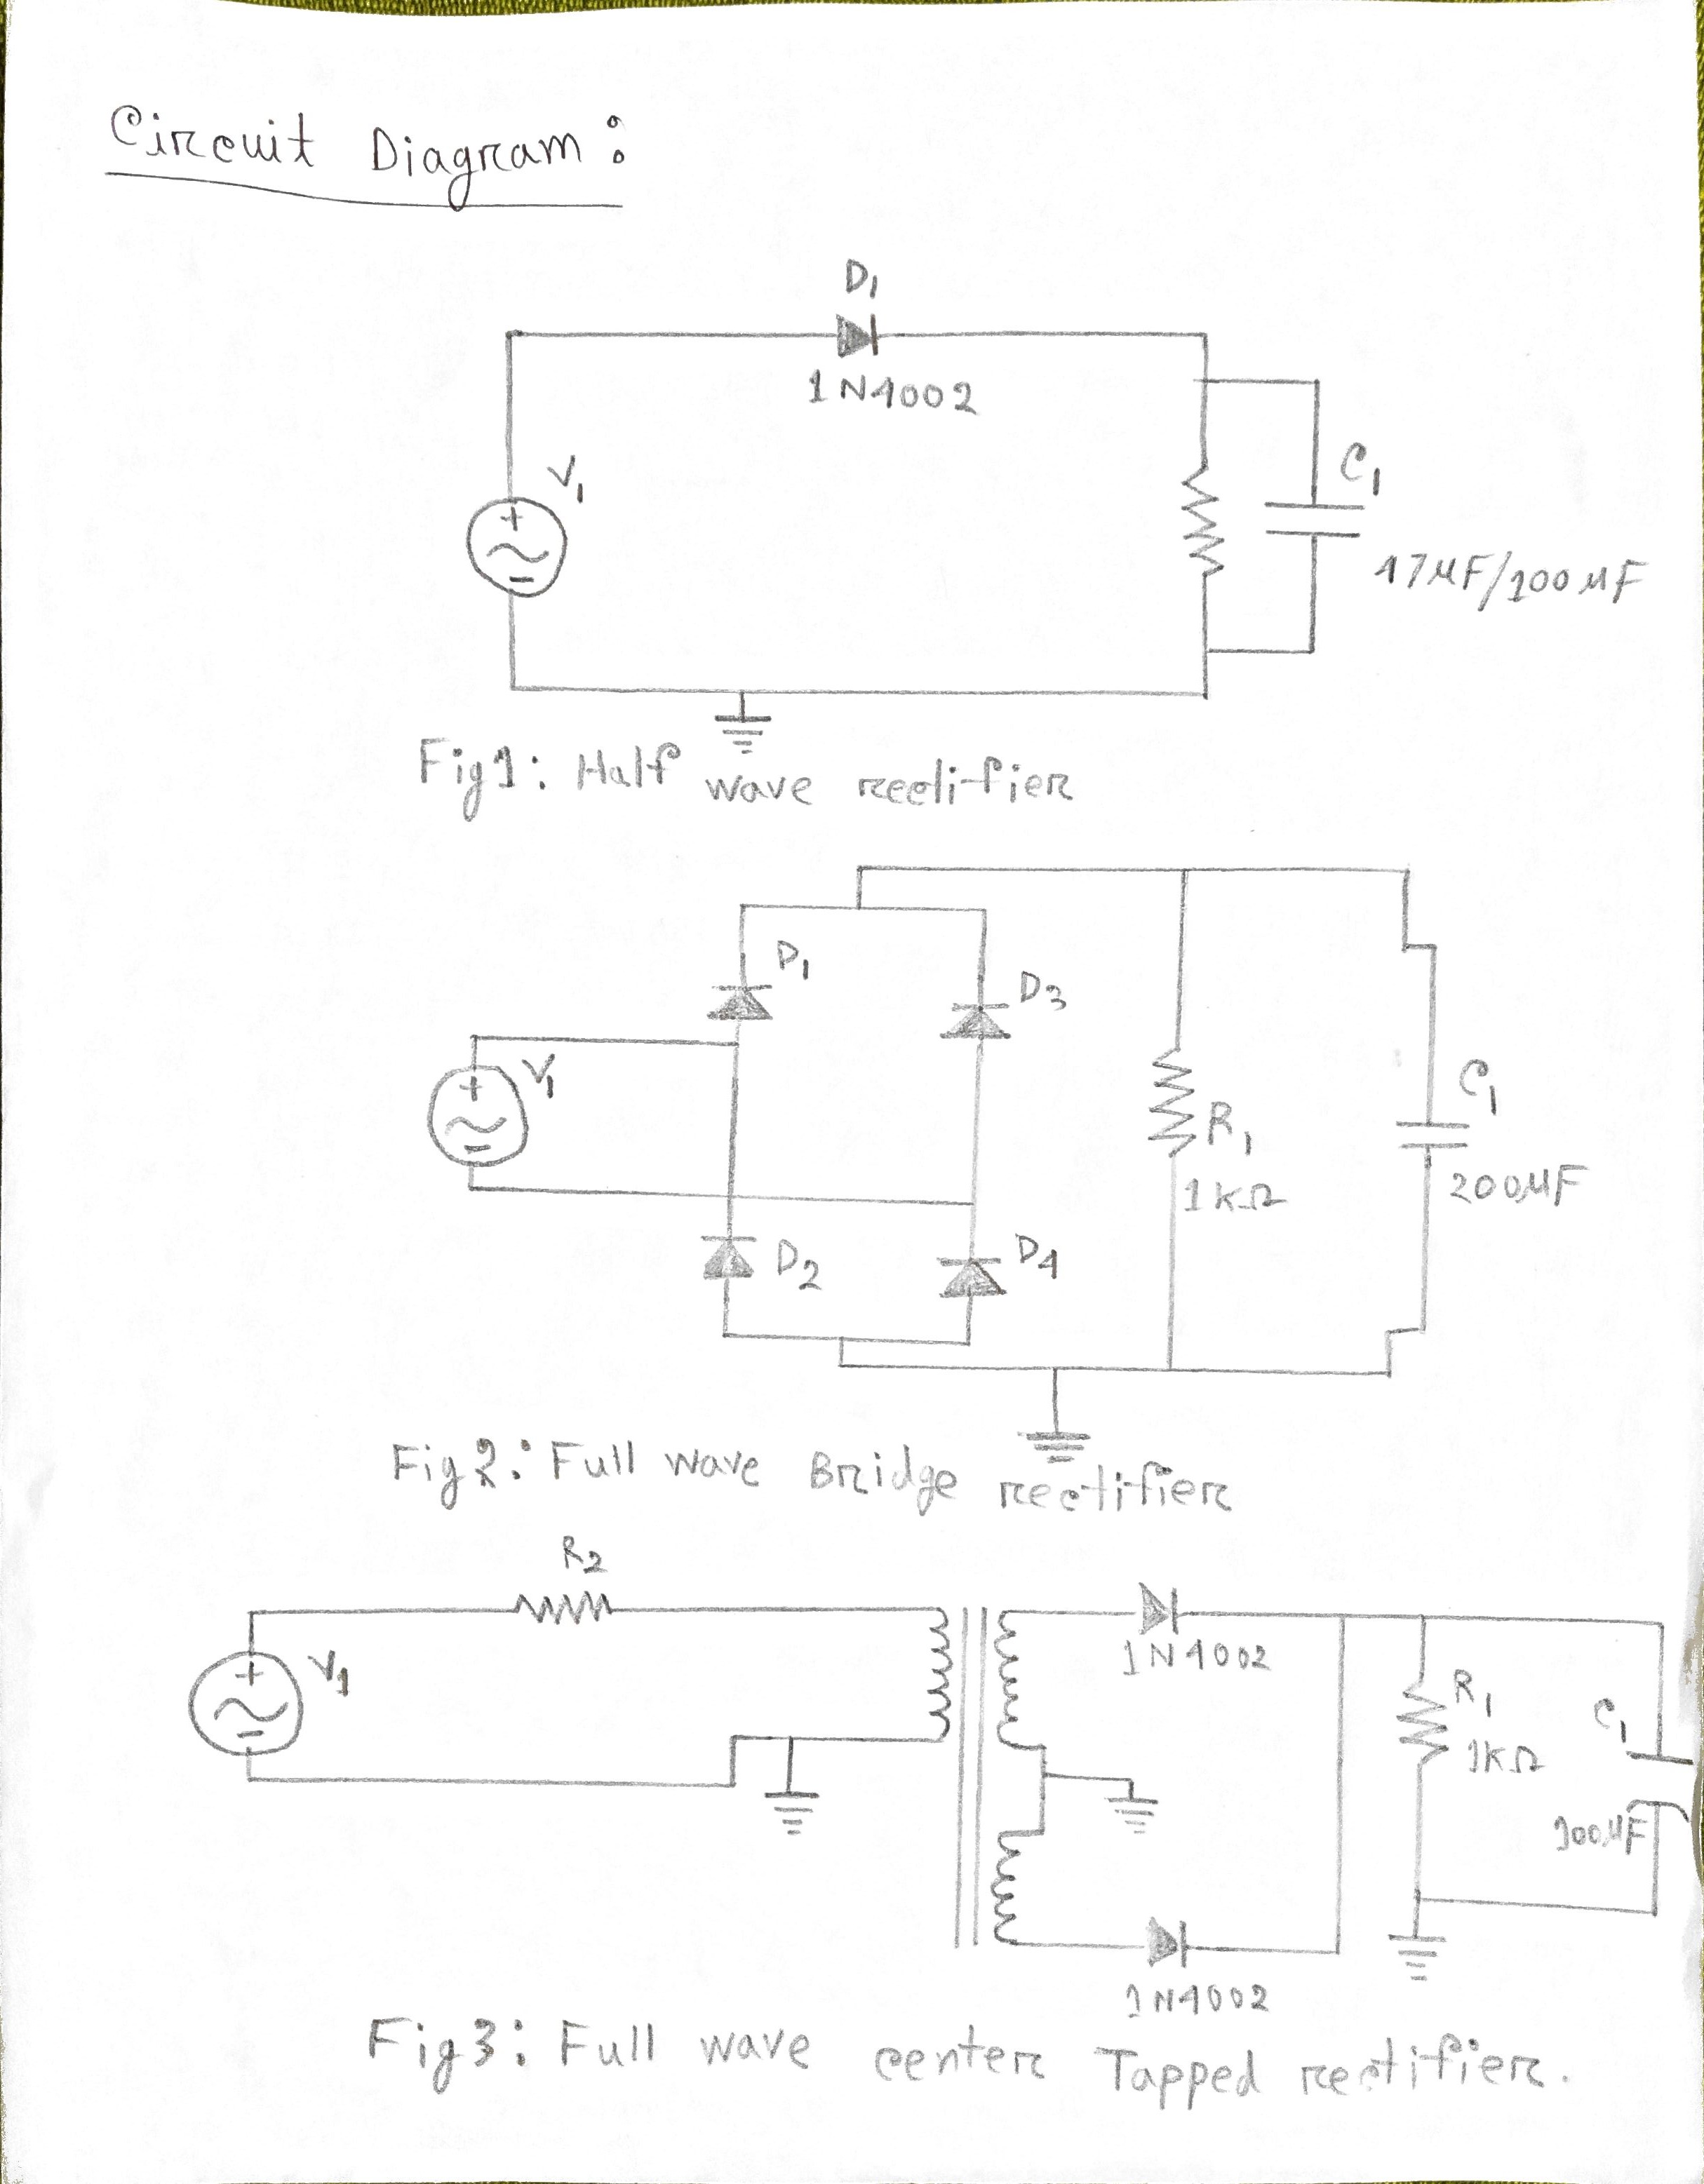 Circuit Diagram:
D1
1N4002
V1
+
-
C1
47μF/100μF
Fig1: Half wave rectifier
D1
D3
V1
+
-
C1
R1
1KΩ
200μF
D2
D4
Fig2: Full wave Bridge rectifier
R2
V1
+
-
1N4002
R1
1KΩ
C1
100μF
1N4002
Fig3: Full wave center Tapped rectifier.